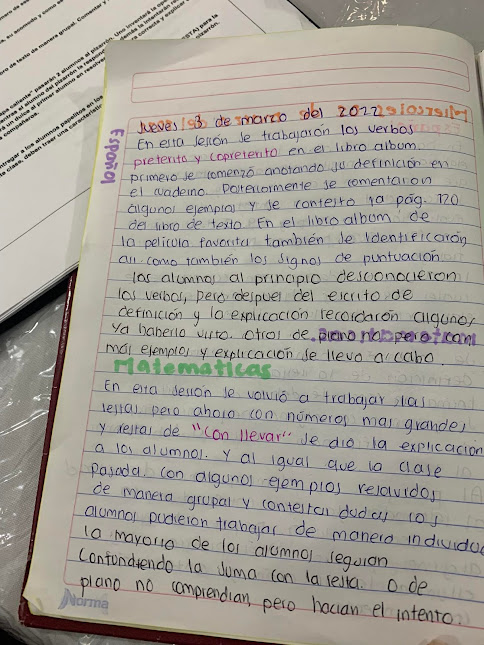 Jueves 3 de marzo del 2022
Español
En esta sesión se trabajaron los verbos
preterito y copreterito en el libro album.
primero se comenzó anotando su definición en
el cuaderno. Posteriormente se comentaron
algunos ejemplos y se contesto la pág. 120
del libro de texto. En el libro album de
la película favorita también se identificarón
así como también los signos de puntuación.
los alumnos al principio desconocieron
los verbos, pero despues del escrito de
definición y la explicación recordarón algunos
Ya haberlo visto. otros de plano no pero con
más ejemplos y explicación se llevo a cabo.
Matemáticas
En esta sesión se volvió a trabajar las
restas pero ahora con números mas grandes
y restas de "Con llevar" se dió la explicación
a los alumnos. Y al igual que la clase
pasada con algunos ejemplos resolvidos
de manera grupal y contestar dudas los
alumnos pudieron trabajar de manera individu
la mayoría de los alumnos seguían
Confundiendo la suma con la resta. O de
plano no comprendían, pero hacían el intento.
Norma